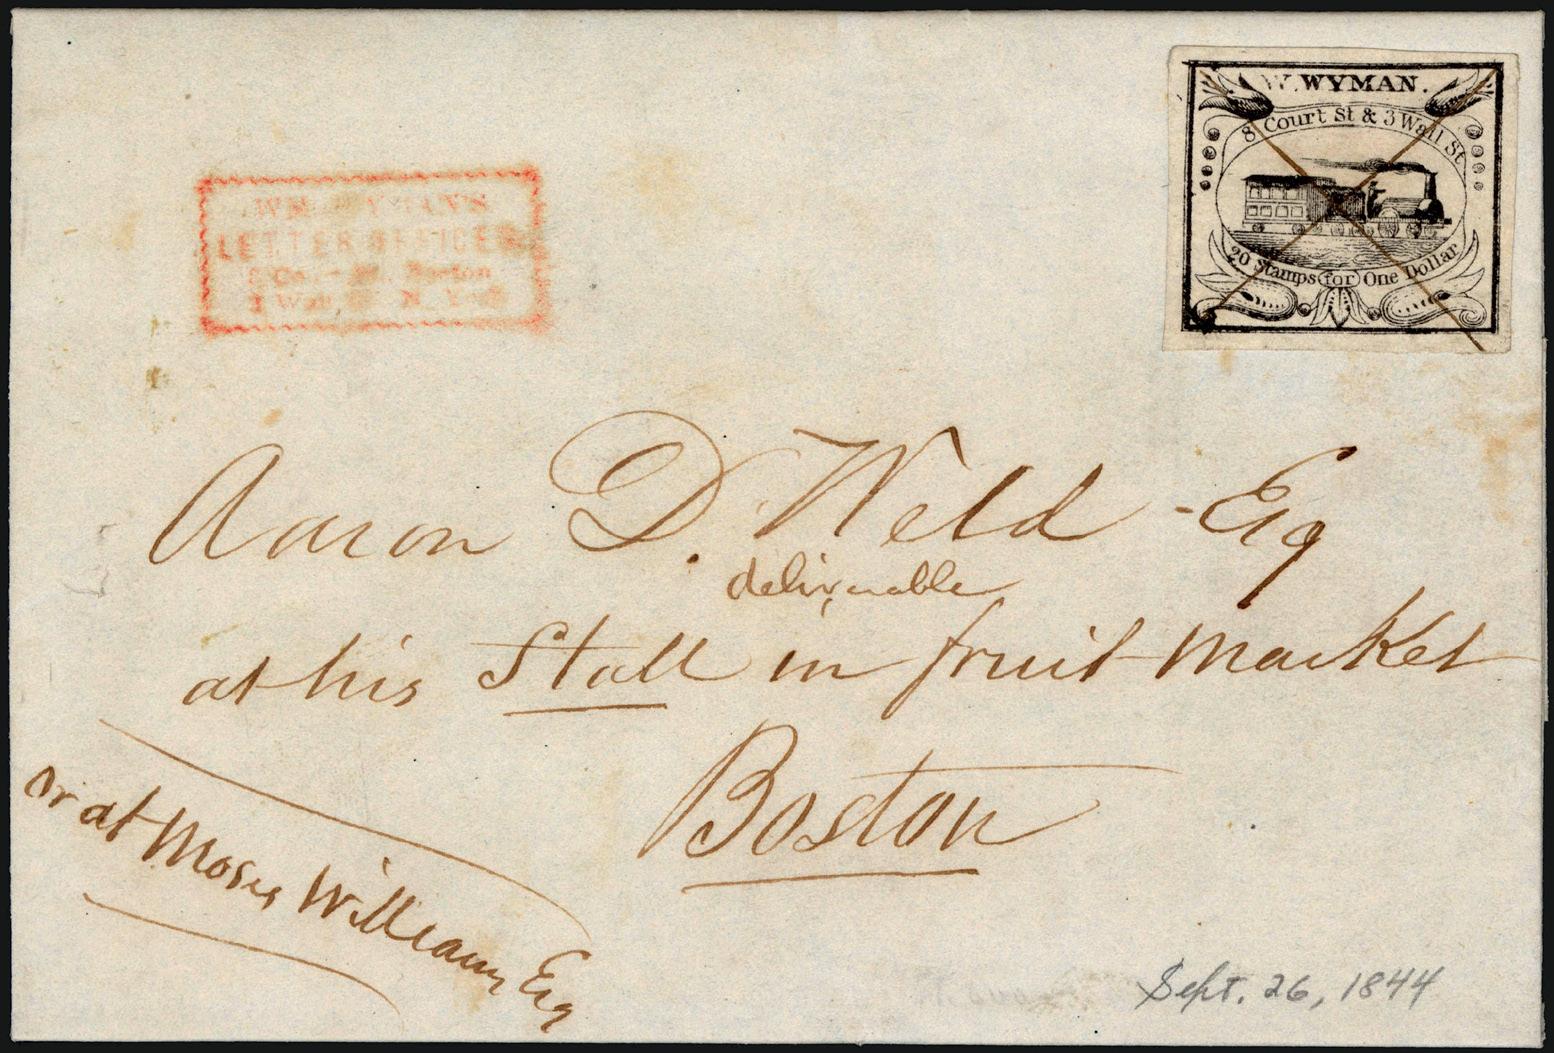 W. WYMAN.
8 Court St & 3 Wall St
20 Stamps for One Dollar
WM. WYMAN'S
LETTER OFFICES
8 Court St. Boston
3 Wall St. N. York
Aaron D. Weld - Esq
deliverable
at his Stall in fruit market
Boston
or at Moses Williams Esq
Sept. 26, 1844